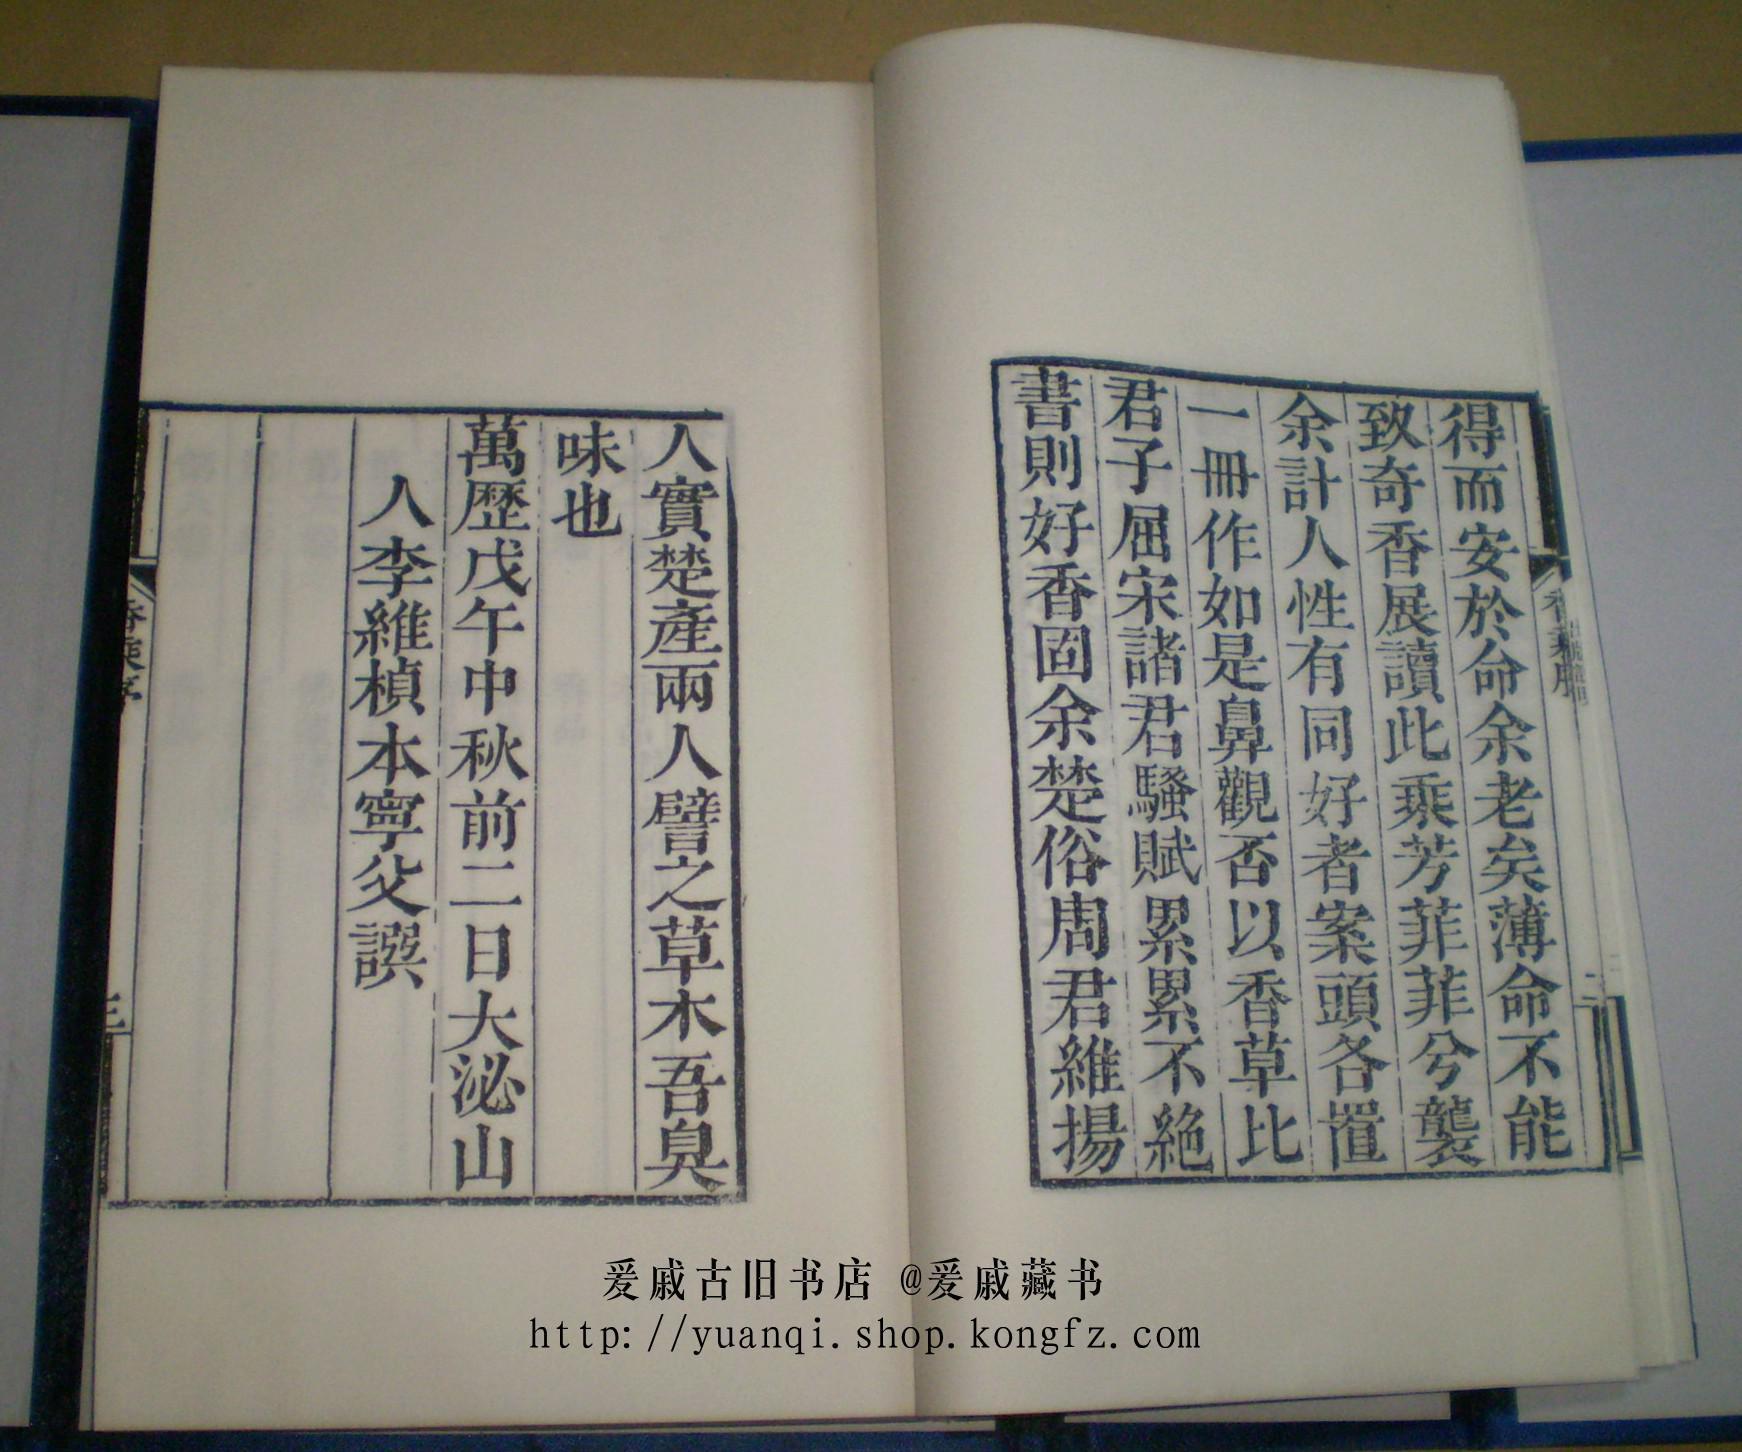 得而安於命余老矣薄命不能
致奇香展讀此乘芳菲菲兮襲
余計人性有同好者案頭各置
一冊作如是鼻觀否以香草比
君子屈宋諸君騷賦累累不絕
書則好香固余楚俗周君維揚
人實楚產兩人譬之草木吾臭
味也
萬歷戊午中秋前二日大泌山
人李維楨本寧父譔
香乘序
三
爰戚古旧书店 @爰戚藏书
http://yuanqi.shop.kongfz.com